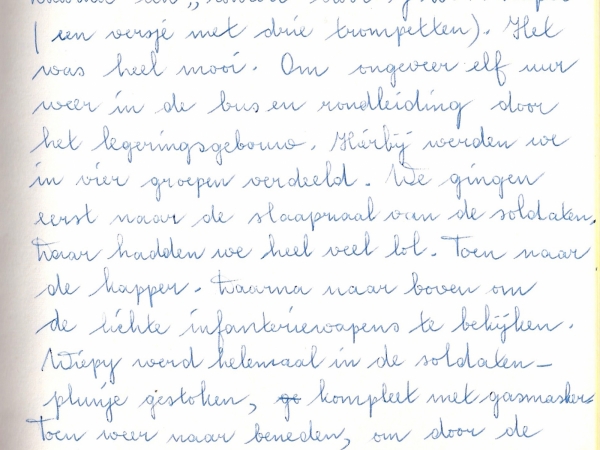 ( een versje met drie trompetten). Het
was heel mooi. Om ongeveer elf uur
weer in de bus en rondleiding door
het legeringsgebouw. Hierbij werden we
in vier groepen verdeeld. We gingen
eerst naar de slaapzaal van de soldaten.
Daar hadden we heel veel lol. Toen naar
de kapper. Daarna naar boven om
de lichte infanteriewapens te bekijken.
Wiepy werd helemaal in de soldaten-
plunje gestoken, kompleet met gasmasker
Toen weer naar beneden, om door de